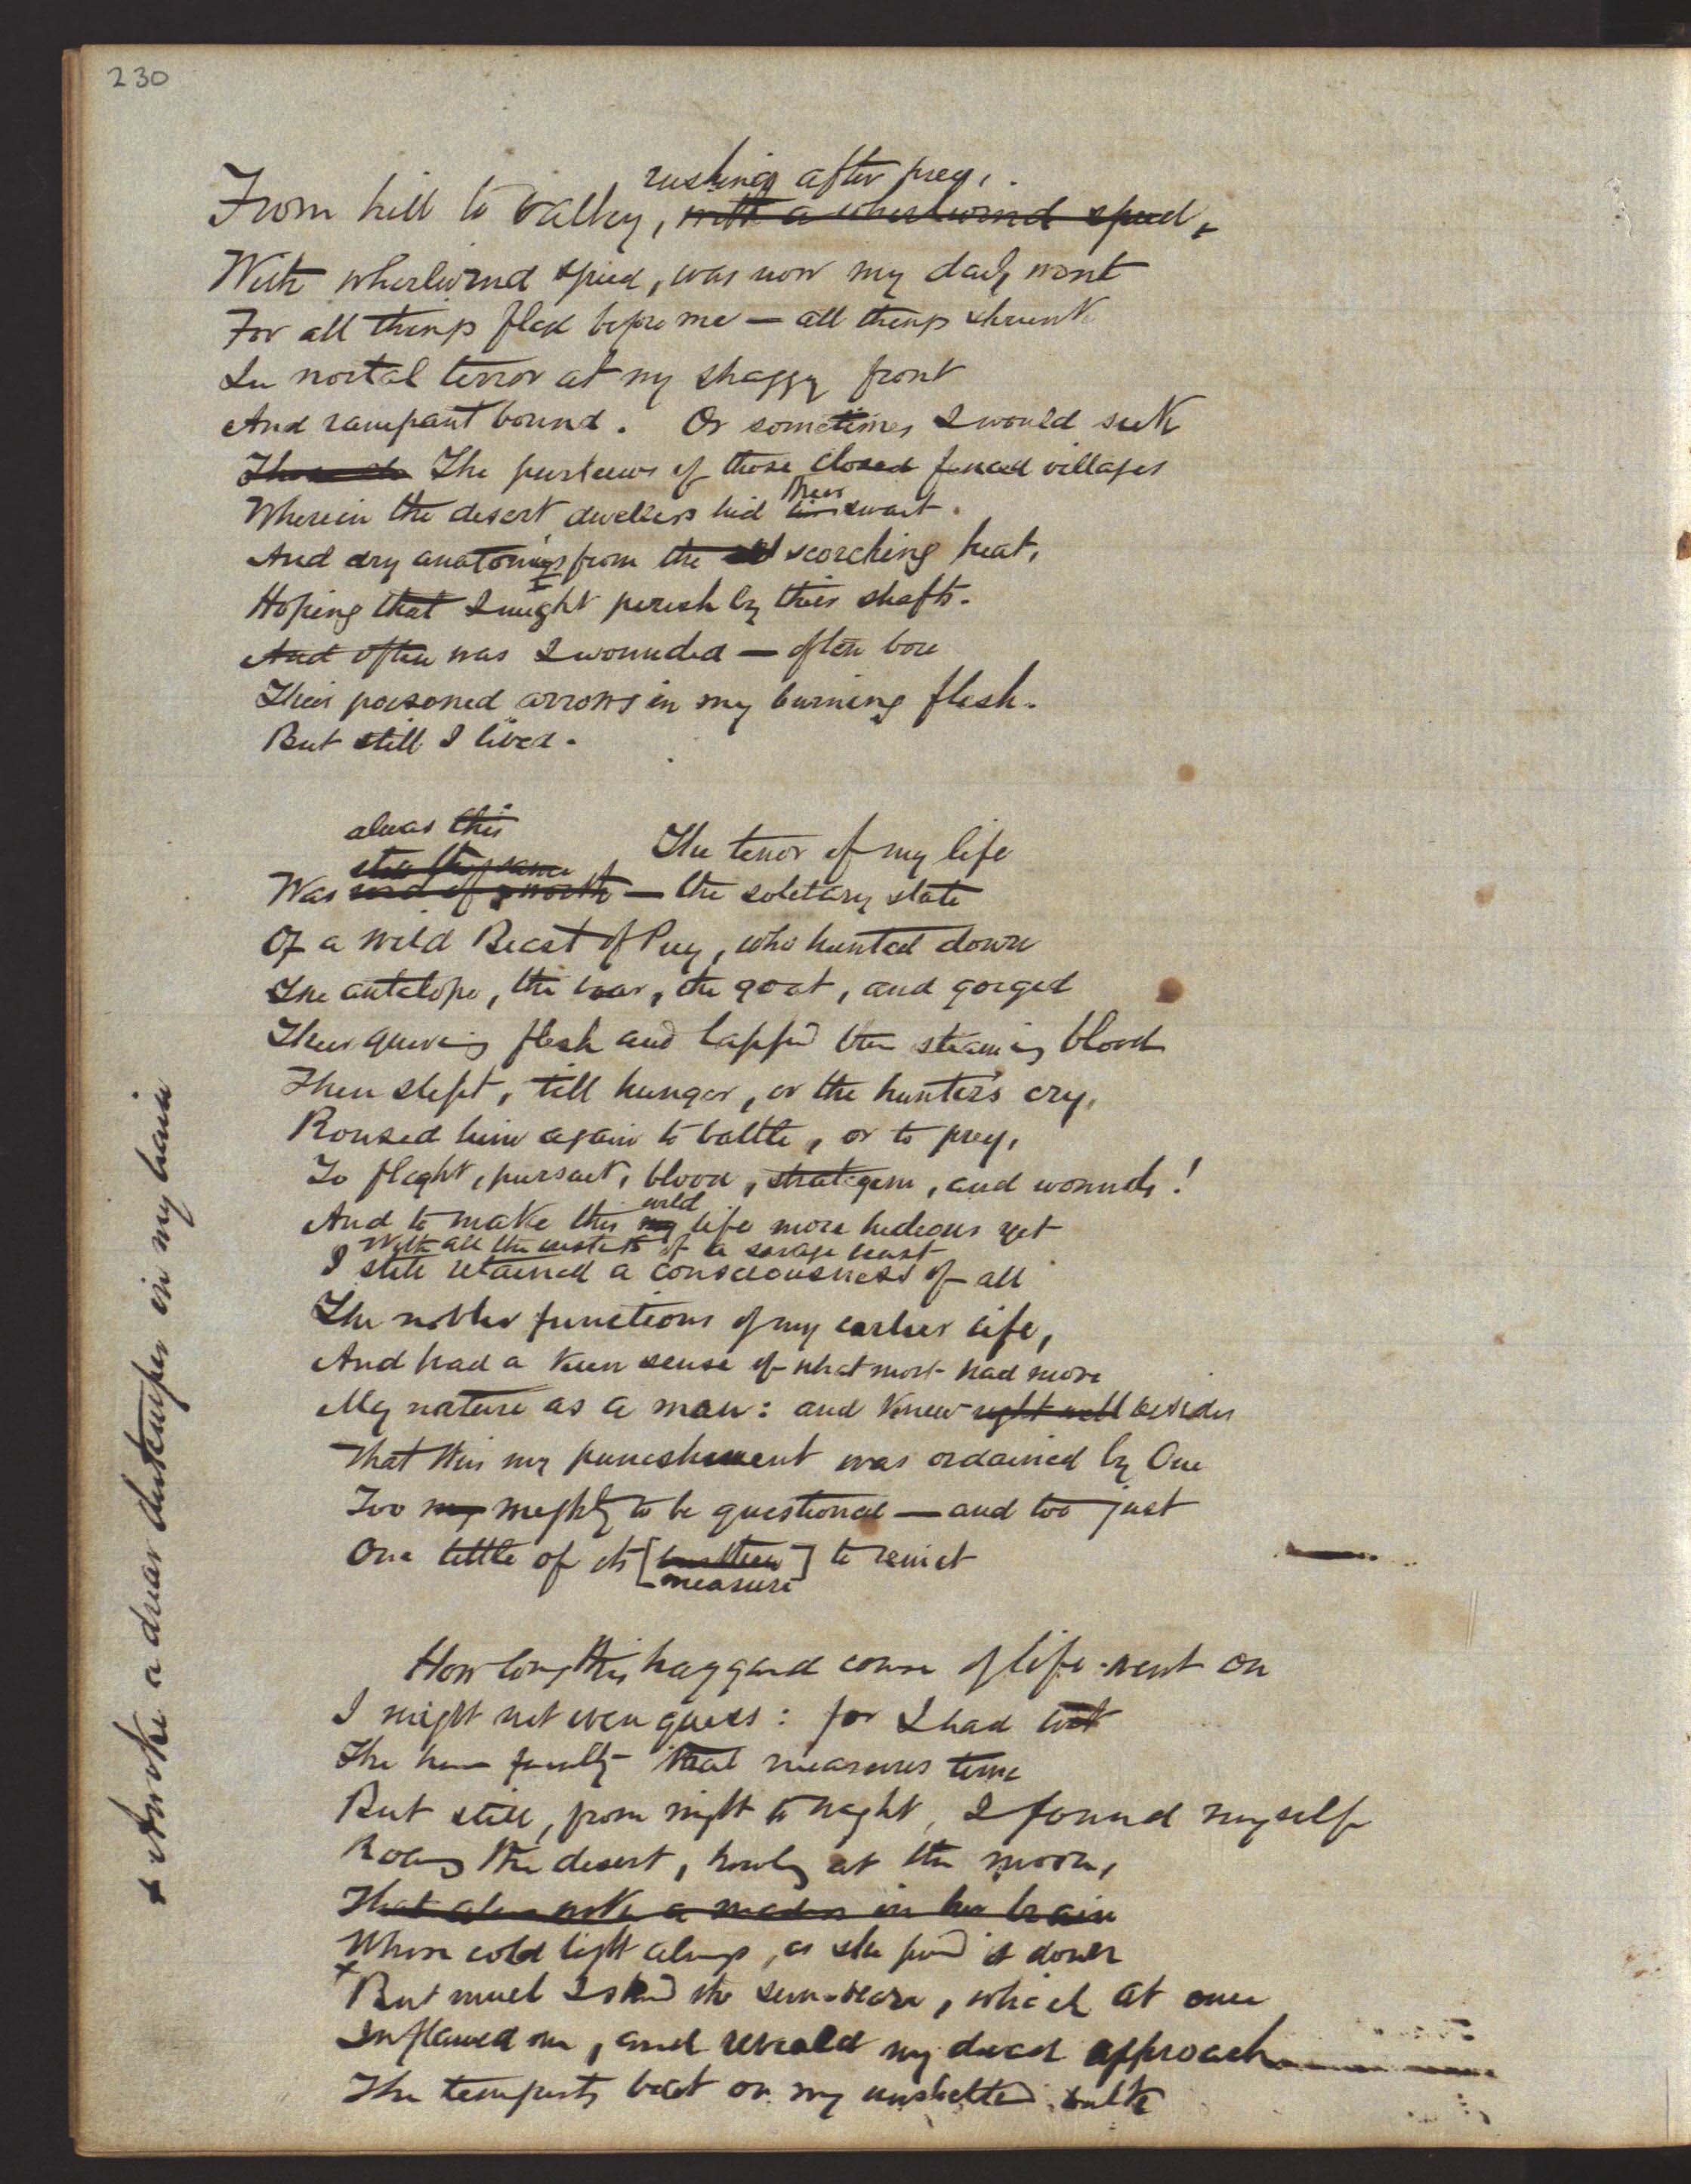 230
rushing after prey,
From hill to valley, with a whirlwind speed,
With whirlwind speed, was now my daily wont
For all things fled before me — all things shrunk
In mortal terror at my shaggy front
And rampant bound. Or sometimes I would seek
The purlieus of those closed fenced villages
their
Wherein the desert dwellers hid swart
And dry anatomies from the scorching heat,
Hoping that I might perish by their shafts.
And often was I wounded — often bore
Their poisoned arrows in my burning flesh.
But still I lived.
always this
The tenor of my life
still the same
Was — the solitary state
Of a Wild Beast of Prey, who hunted down
The antelope, the boar, the goat, and gorged
Their quivering flesh and lapped their steaming blood
Then slept, till hunger, or the hunter's cry,
Roused him again to battle, or to prey,
To flight, pursuit, blood, stratagem, and wounds!
wild
And to make this my life more hideous yet
With all the instincts of a savage beast
I still retained a consciousness of all
The nobler functions of my earlier life,
And had a keen sense of what most had more
My nature as a man: and knew right well besides
That this my punishment was ordained by One
Too mighty to be questioned — and too just
One tittle of its [burthen] to remit
measure
How long this haggard course of life went on
I might not even guess: for I had lost
The human faculty that measures time
But still, from night to night, I found myself
Roaming the desert, howling at the moon,
That always woke a madness in her brain
Whose cold light always, as she poured it down
+ Awoke a drear distemper in my brain
x But much I shunned the sun-beam, which at once
Inflamed me, and revealed my dread approach
The tempests beat on my unsheltered bulk